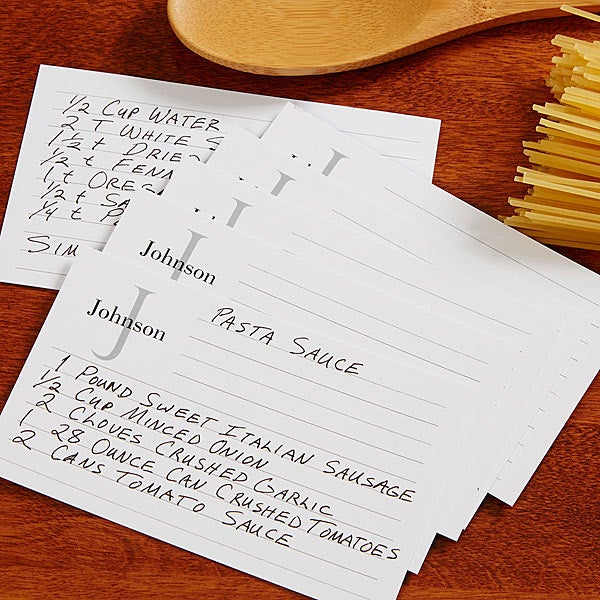 ½ CUP WATER
2 T WHITE
1½ t DRIED
½ t
1 t
½ t
¼ t
J
J
J
J
Johnson
J
Johnson
PASTA SAUCE
1 POUND SWEET ITALIAN SAUSAGE
½ CUP MINCED ONION
2 CLOVES CRUSHED GARLIC
1 28 OUNCE CAN CRUSHED TOMATOES
2 CANS TOMATO SAUCE